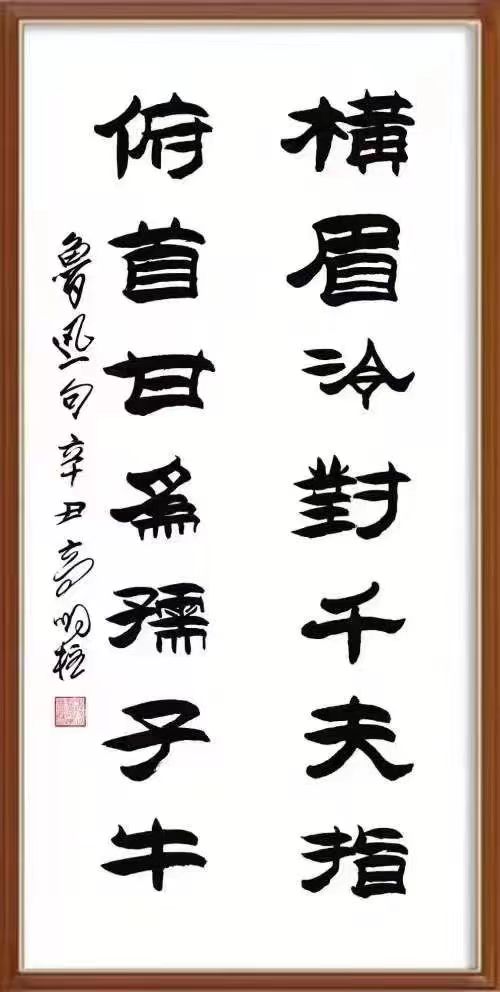 橫眉冷對千夫指
俯首甘爲孺子牛
魯迅句辛丑高明柱